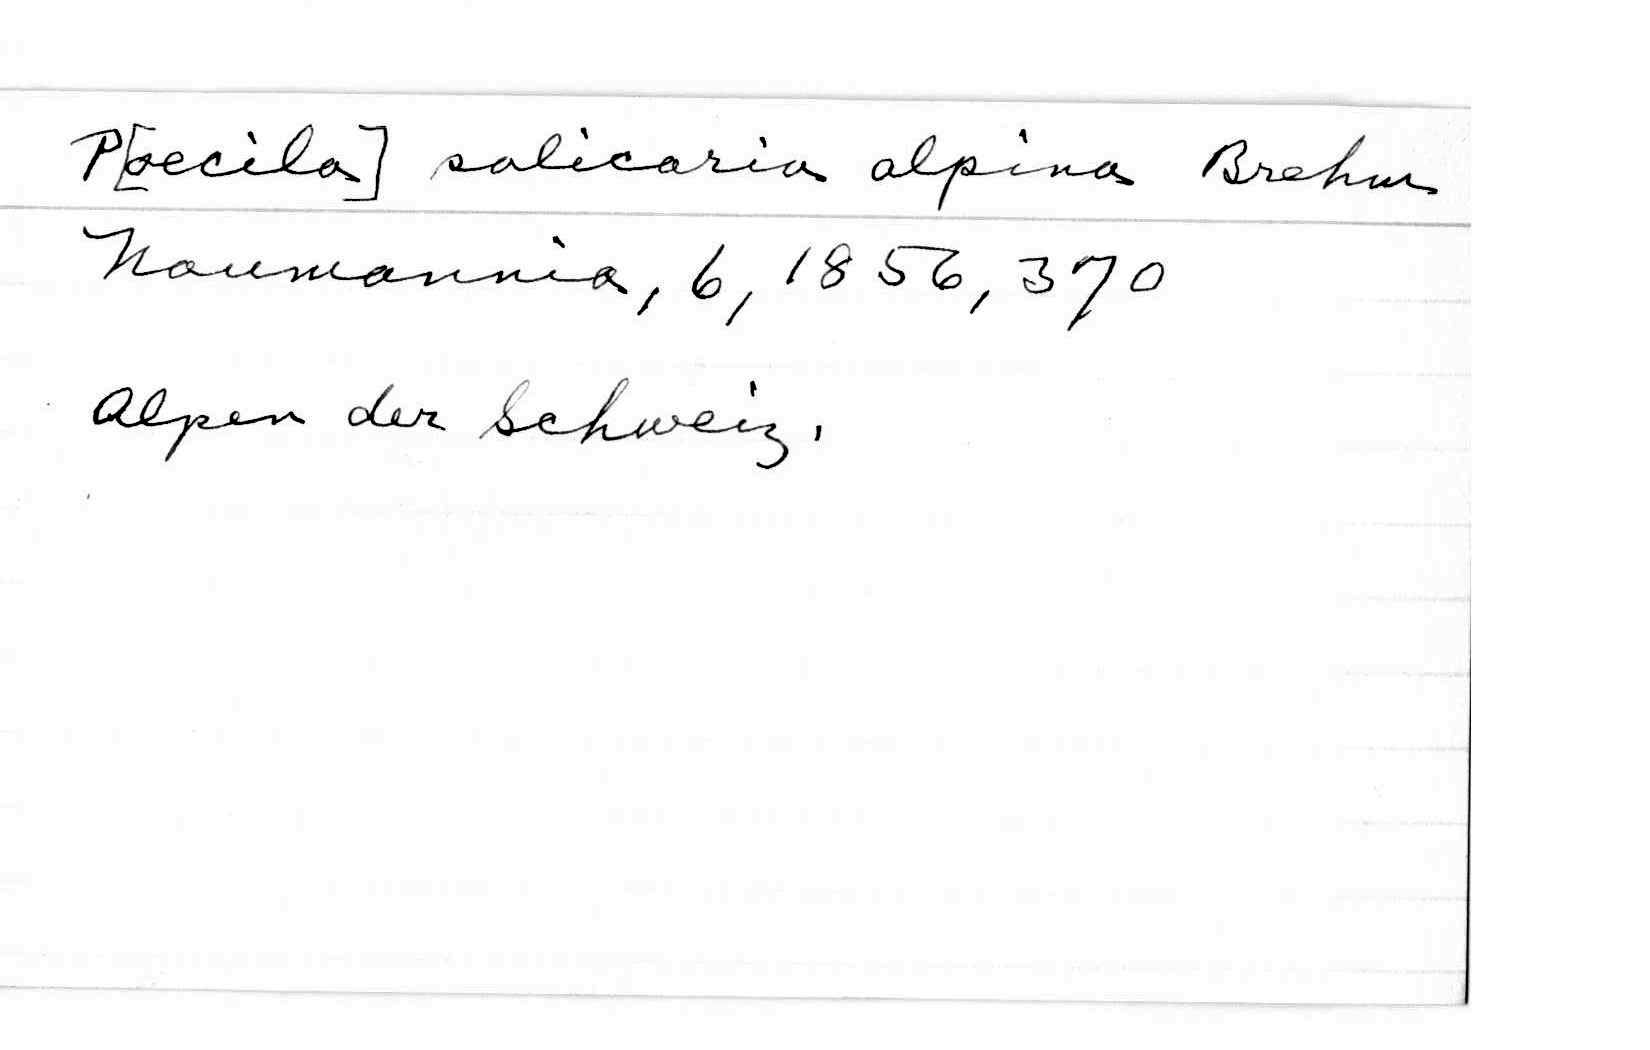 P[oecila] salicaria alpina Brehm
Naumannia, 6, 1856, 370
Alpen der Schweiz.